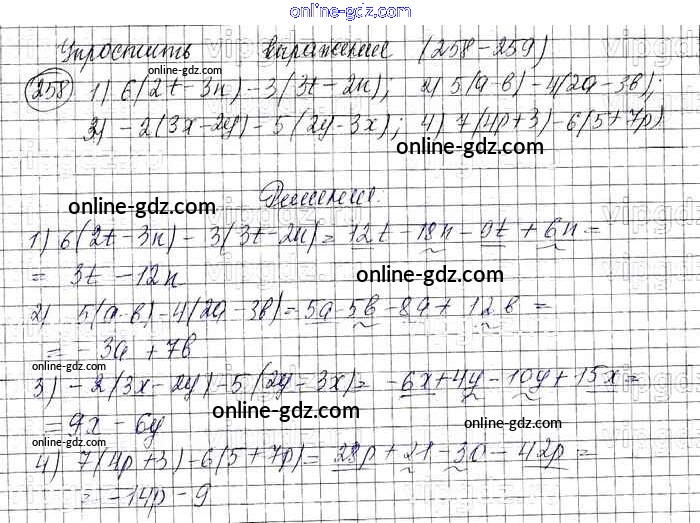 online-gdz.com
Упростить выражения (258-259)
online-gdz.com
258 1) 6(2t-3n)-3(3t-2n); 2) 5(a-в)-4(2a-3в);
3) -2(3x-2y)-5(2y-3x); 4) 7(4p+3)-6(5+7p)
online-gdz.com
online-gdz.com
Решение.
online-gdz.com
1) 6(2t-3n)-3(3t-2n)=12t-18n-9t+6n=
= 3t-12n
online-gdz.com
online-gdz.com
2) 5(a-в)-4(2a-3в)=5a-5в-8a+12в=
= -3a+7в
online-gdz.com
online-gdz.com
3) -2(3x-2y)-5(2y-3x)= -6x+4y-10y+15x=
= 9x-6y
online-gdz.com
online-gdz.com
online-gdz.com
4) 7(4p+3)-6(5+7p)=28p+21-30-42p=
= -14p-9
online-gdz.com